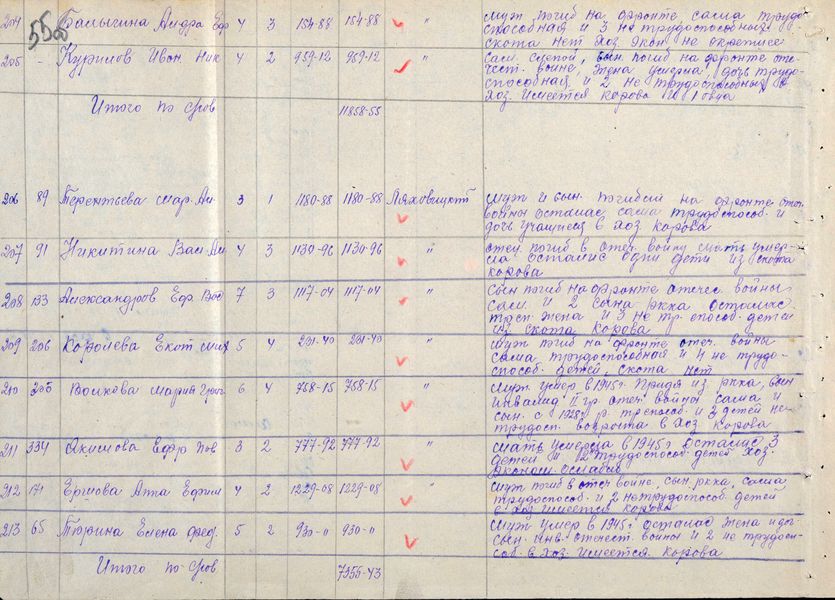 204 Балыгина Андра Еф 4 3 154-88 154-88 " муж погиб на фронте, сама трудо-
55
способная и 3 не трудоспособных.
скота нет хоз. экон. не окрепшее
205 - Курилов Иван Ник 4 2 959-12 959-12 " Сам слепой, сын погиб на фронте оте-
чест. войне, жена, дочь трудо-
способная и 2 не трудоспособных в
хоз. имеется корова и 1 овца
Итого по с/сов 11858-55
206 89 Терентьева Мар. Ан. 3 1 1180-88 1180-88 муж и сын погибли на фронте отеч.
войны осталас сама трудоспособ. и
дочь учащиеся в хоз корова
207 91 Никитина Вал Ан 4 3 1130-96 1130-96 " отец погиб в отеч. войну мать умер-
ла осталис одни дети из скота
корова
208 133 Александров Еф. 7 3 1117-04 1117-04 " сын погиб на фронте отечес войны
сам и 2 сына ркка осталис
жена и 3 не тр. способ. детей
из скота корова
209 206 Королева Екат. Мих 5 4 201-40 201-40 " муж погиб на фронте отеч. войны
сама трудоспособная и 4 не трудо-
способ. детей, скота нет
210 205 Мария Григ 6 4 758-15 758-15 " муж умер в 1945г. Придя из ркка, сын
инвалид II гр. отеч. войны сама и
сын с 1928г. р. и 3 детей не-
трудосп. возраста в хоз. корова
211 334 Акимова Ефр Пав 3 2 777-92 777-92 " мать умерла в 1945г осталас 3
детей и 12 трудоспособ. детей хоз.
эконом ослабла
212 171 Ершова Анна Ефим 4 2 1229-08 1229-08 " муж погиб в отеч войне, сын ркка, сама
трудоспособ. и 2 нетрудоспособ. детей
в хоз имеется корова
213 65 Тюрина Елена Фед. 5 2 930-11 930-11 " муж умер в 1945г осталас жена и
сын инв. отечест. войны и 2 не трудосп-
соб. в хоз. имеется корова
Итого по с/сов 7356-43